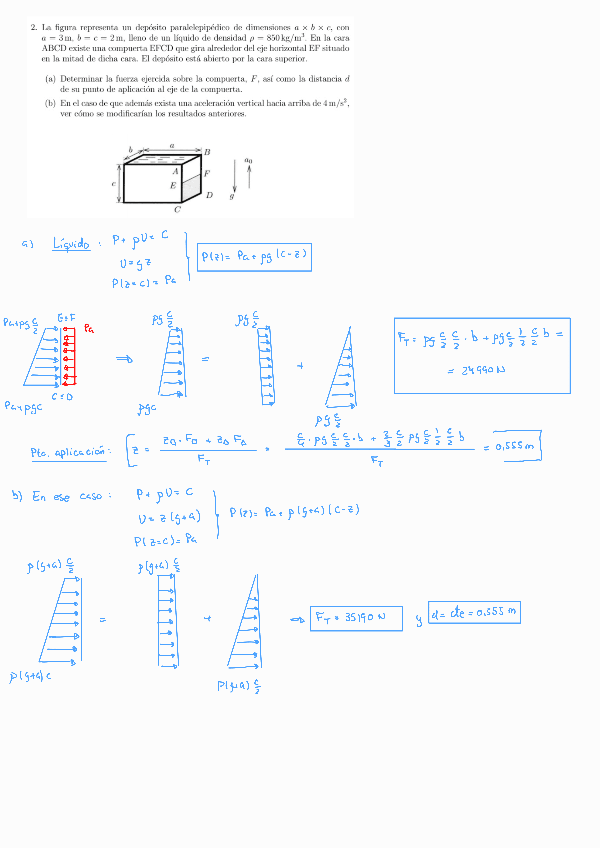 2. La figura representa un depósito paralelepipédico de dimensiones a × b × c, con
a = 3 m, b = c = 2 m, lleno de un líquido de densidad ρ = 850 kg/m³. En la cara
ABCD existe una compuerta EFCD que gira alrededor del eje horizontal EF situado
en la mitad de dicha cara. El depósito está abierto por la cara superior.
(a) Determinar la fuerza ejercida sobre la compuerta, F, así como la distancia d
de su punto de aplicación al eje de la compuerta.
(b) En el caso de que además exista una aceleración vertical hacia arriba de 4 m/s²,
ver cómo se modificarían los resultados anteriores.
b a B
A
c E F
D
C
g a₀
a) Líquido: P + ρU = C
U = gz
P(z=c) = Pa
P(z) = Pa + ρg(c-z)
Pa+ρg c/2 E≡F Pa
C≡D
Pa+ρgc
⇒ ρg c/2
ρgc
= ρg c/2
+
ρg c/2
F_T = ρg c/2 c/2 · b + ρg c/2 1/2 c/2 b =
= 24990 N
Pto. aplicación:
= 0,555 m
b) En ese caso: P + ρU = C
U = z(g+a)
P(z=c) = Pa
P(z) = Pa + ρ(g+a)(c-z)
ρ(g+a) c/2
ρ(g+a)c
= ρ(g+a) c/2
+
ρ(g+a) c/2
⇒ F_T = 35190 N y d = cte = 0.555 m